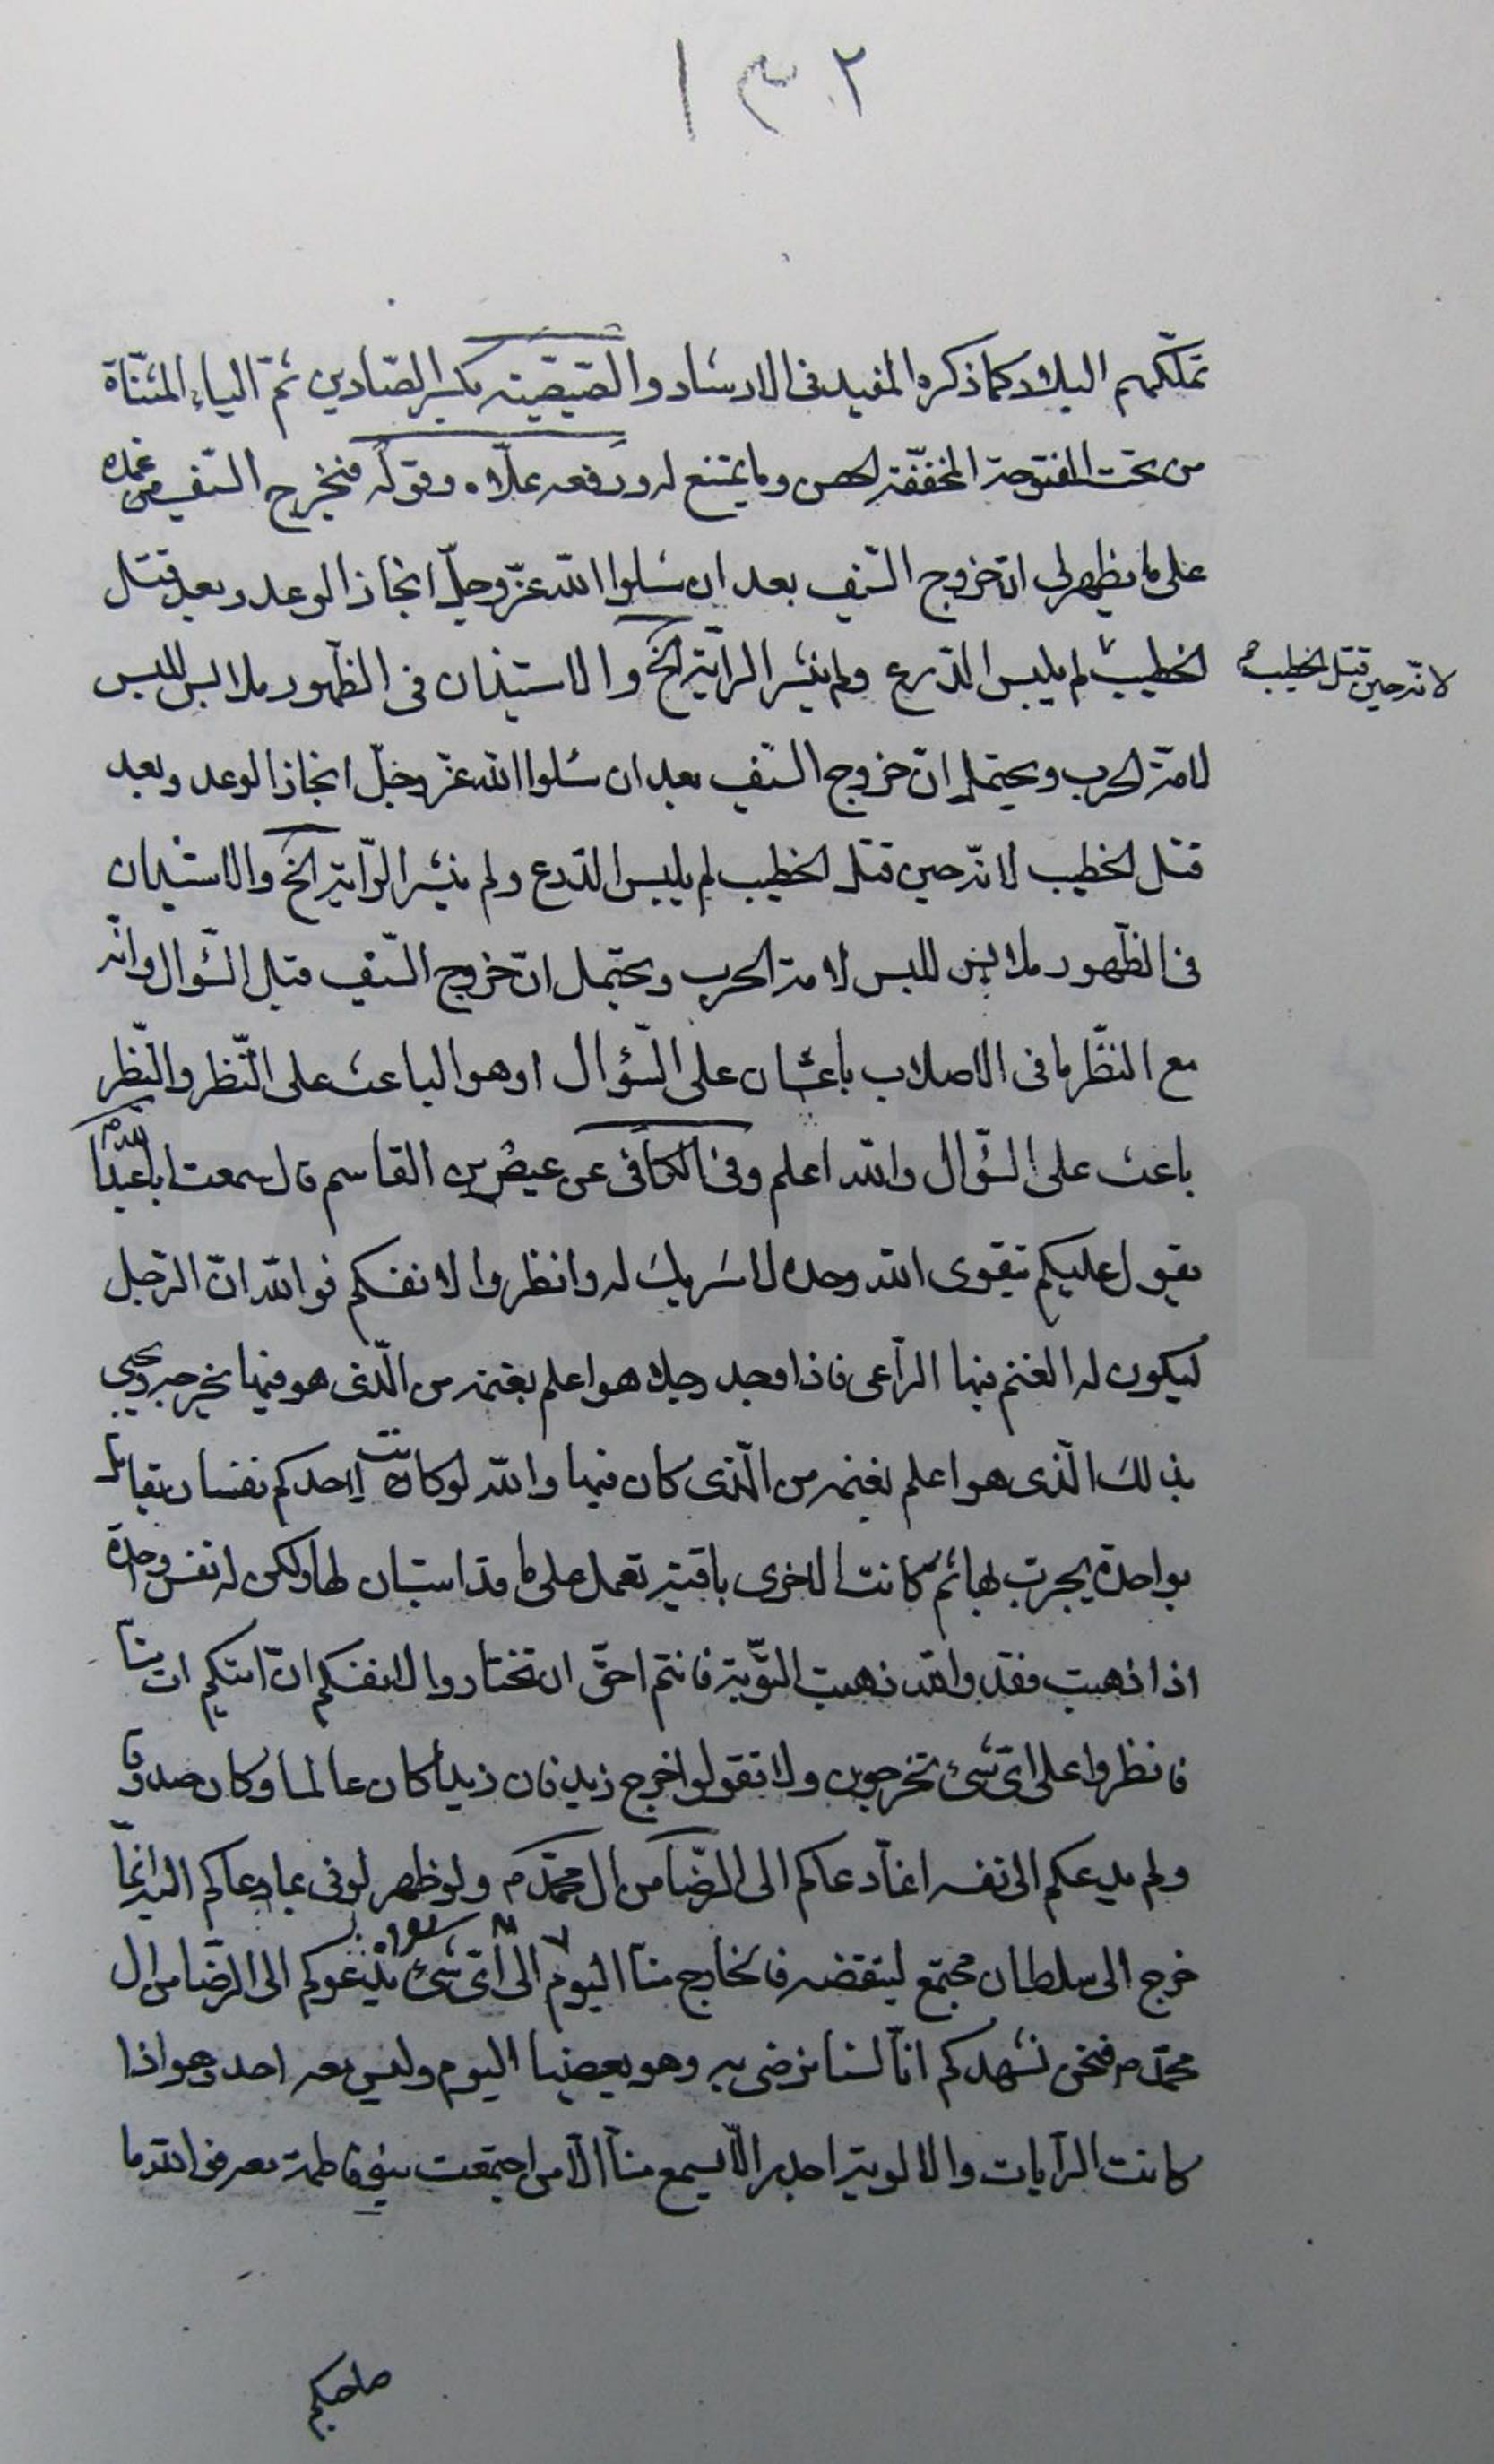 ١٣٢
تملّكهم البلاد كما ذكره المفيد فى الارشاد والصّيصّية بكسر الصّادين ثمّ الياء المثنّاة
من تحت المفتوحة المخفّفة الحصن وما يمتنع له ورفعه علّاه وقوله فيخرج السّيف من غمده
على ما يظهر لى انّ خروج السّيف بعد ان سئلوا اللّه عزّ وجلّ انجاز الوعد وبعد قتل
الخطيب لم يلبس الدّرع ولم ينشر الرّاية الخ والاستيذان فى الظّهور ملابس للبس
لانّه حين قتل الخطيب
لامة الحرب ويحتمل انّ خروج السّيف بعد ان سئلوا اللّه عزّ وجلّ انجاز الوعد وبعد
قتل الخطيب لانّه حين قتل الخطيب لم يلبس الدّرع ولم ينشر الرّاية الخ والاستيذان
فى الظّهور ملابس للبس لامة الحرب ويحتمل انّ خروج السّيف قبل السّؤال وانّه
مع النّظر ما فى الاصلاب باعثان على السّؤال او هو الباعث على النّظر والنّظر
باعث على السّؤال واللّه اعلم وفى الكافى عن عيص بن القاسم قال سمعت ابا عبد اللّه ع
يقول عليكم بتقوى اللّه وحده لا شريك له وانظروا لانفسكم فواللّه انّ الرّجل
ليكون له الغنم فيها الرّاعى فاذا وجد رجلا هو اعلم بغنمه من الّذى هو فيها يخرجه ويجيئ
بذلك الّذى هو اعلم بغنمه من الّذى كان فيها واللّه لو كانت لاحدكم نفسان يقاتل
بواحدة يجرب بها ثم كانت الاخرى باقية تعمل على ما قد استبان لها ولكن له نفس واحدة
اذا ذهبت فقد واللّه ذهبت التّوبة فانتم احقّ ان تختاروا لانفسكم ان اتاكم ات منّا
فانظروا على اىّ شىء تخرجون ولا تقولوا خرج زيد فان زيدا كان عالما وكان صدوقا
ولم يدعكم الى نفسه انّما دعاكم الى الرّضا من ال محمّد ص ولو ظهر لوفى بما دعاكم اليه انّما
خرج الى سلطان مجتمع لينقضه فالخارج منّا اليوم الى اىّ شىء يدعوكم الى الرّضا من ال
محمّد ص فنحن نشهدكم انّا لسنا نرضى به وهو يعصينا اليوم وليس معه احد وهو اذا
كانت الرّايات والالوية اجدر الّا يسمع منّا الّا من اجتمعت بنو فاطمة معه فواللّه ما
صاحبكم